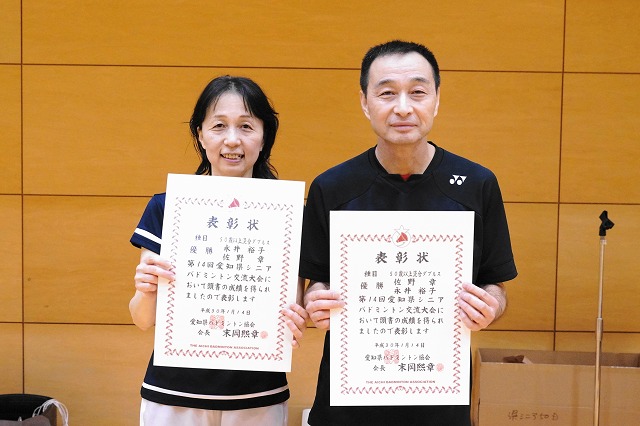 表彰状
種目 50歳以上混合ダブルス
優勝 永井 裕子
佐野 章
第14回愛知県シニア
バドミントン交流大会
において頭書の成績を得られ
ましたので表彰します
平成30年1月14日
愛知県バドミントン協会
会長 末岡熙章
THE AICHI BADMINTON ASSOCIATION
表彰状
種目 50歳以上混合ダブルス
優勝 佐野 章
永井 裕子
第14回愛知県シニア
バドミントン交流大会
において頭書の成績を得られ
ましたので表彰します
平成30年1月14日
愛知県バドミントン協会
会長 末岡熙章
THE AICHI BADMINTON ASSOCIATION
YONEX